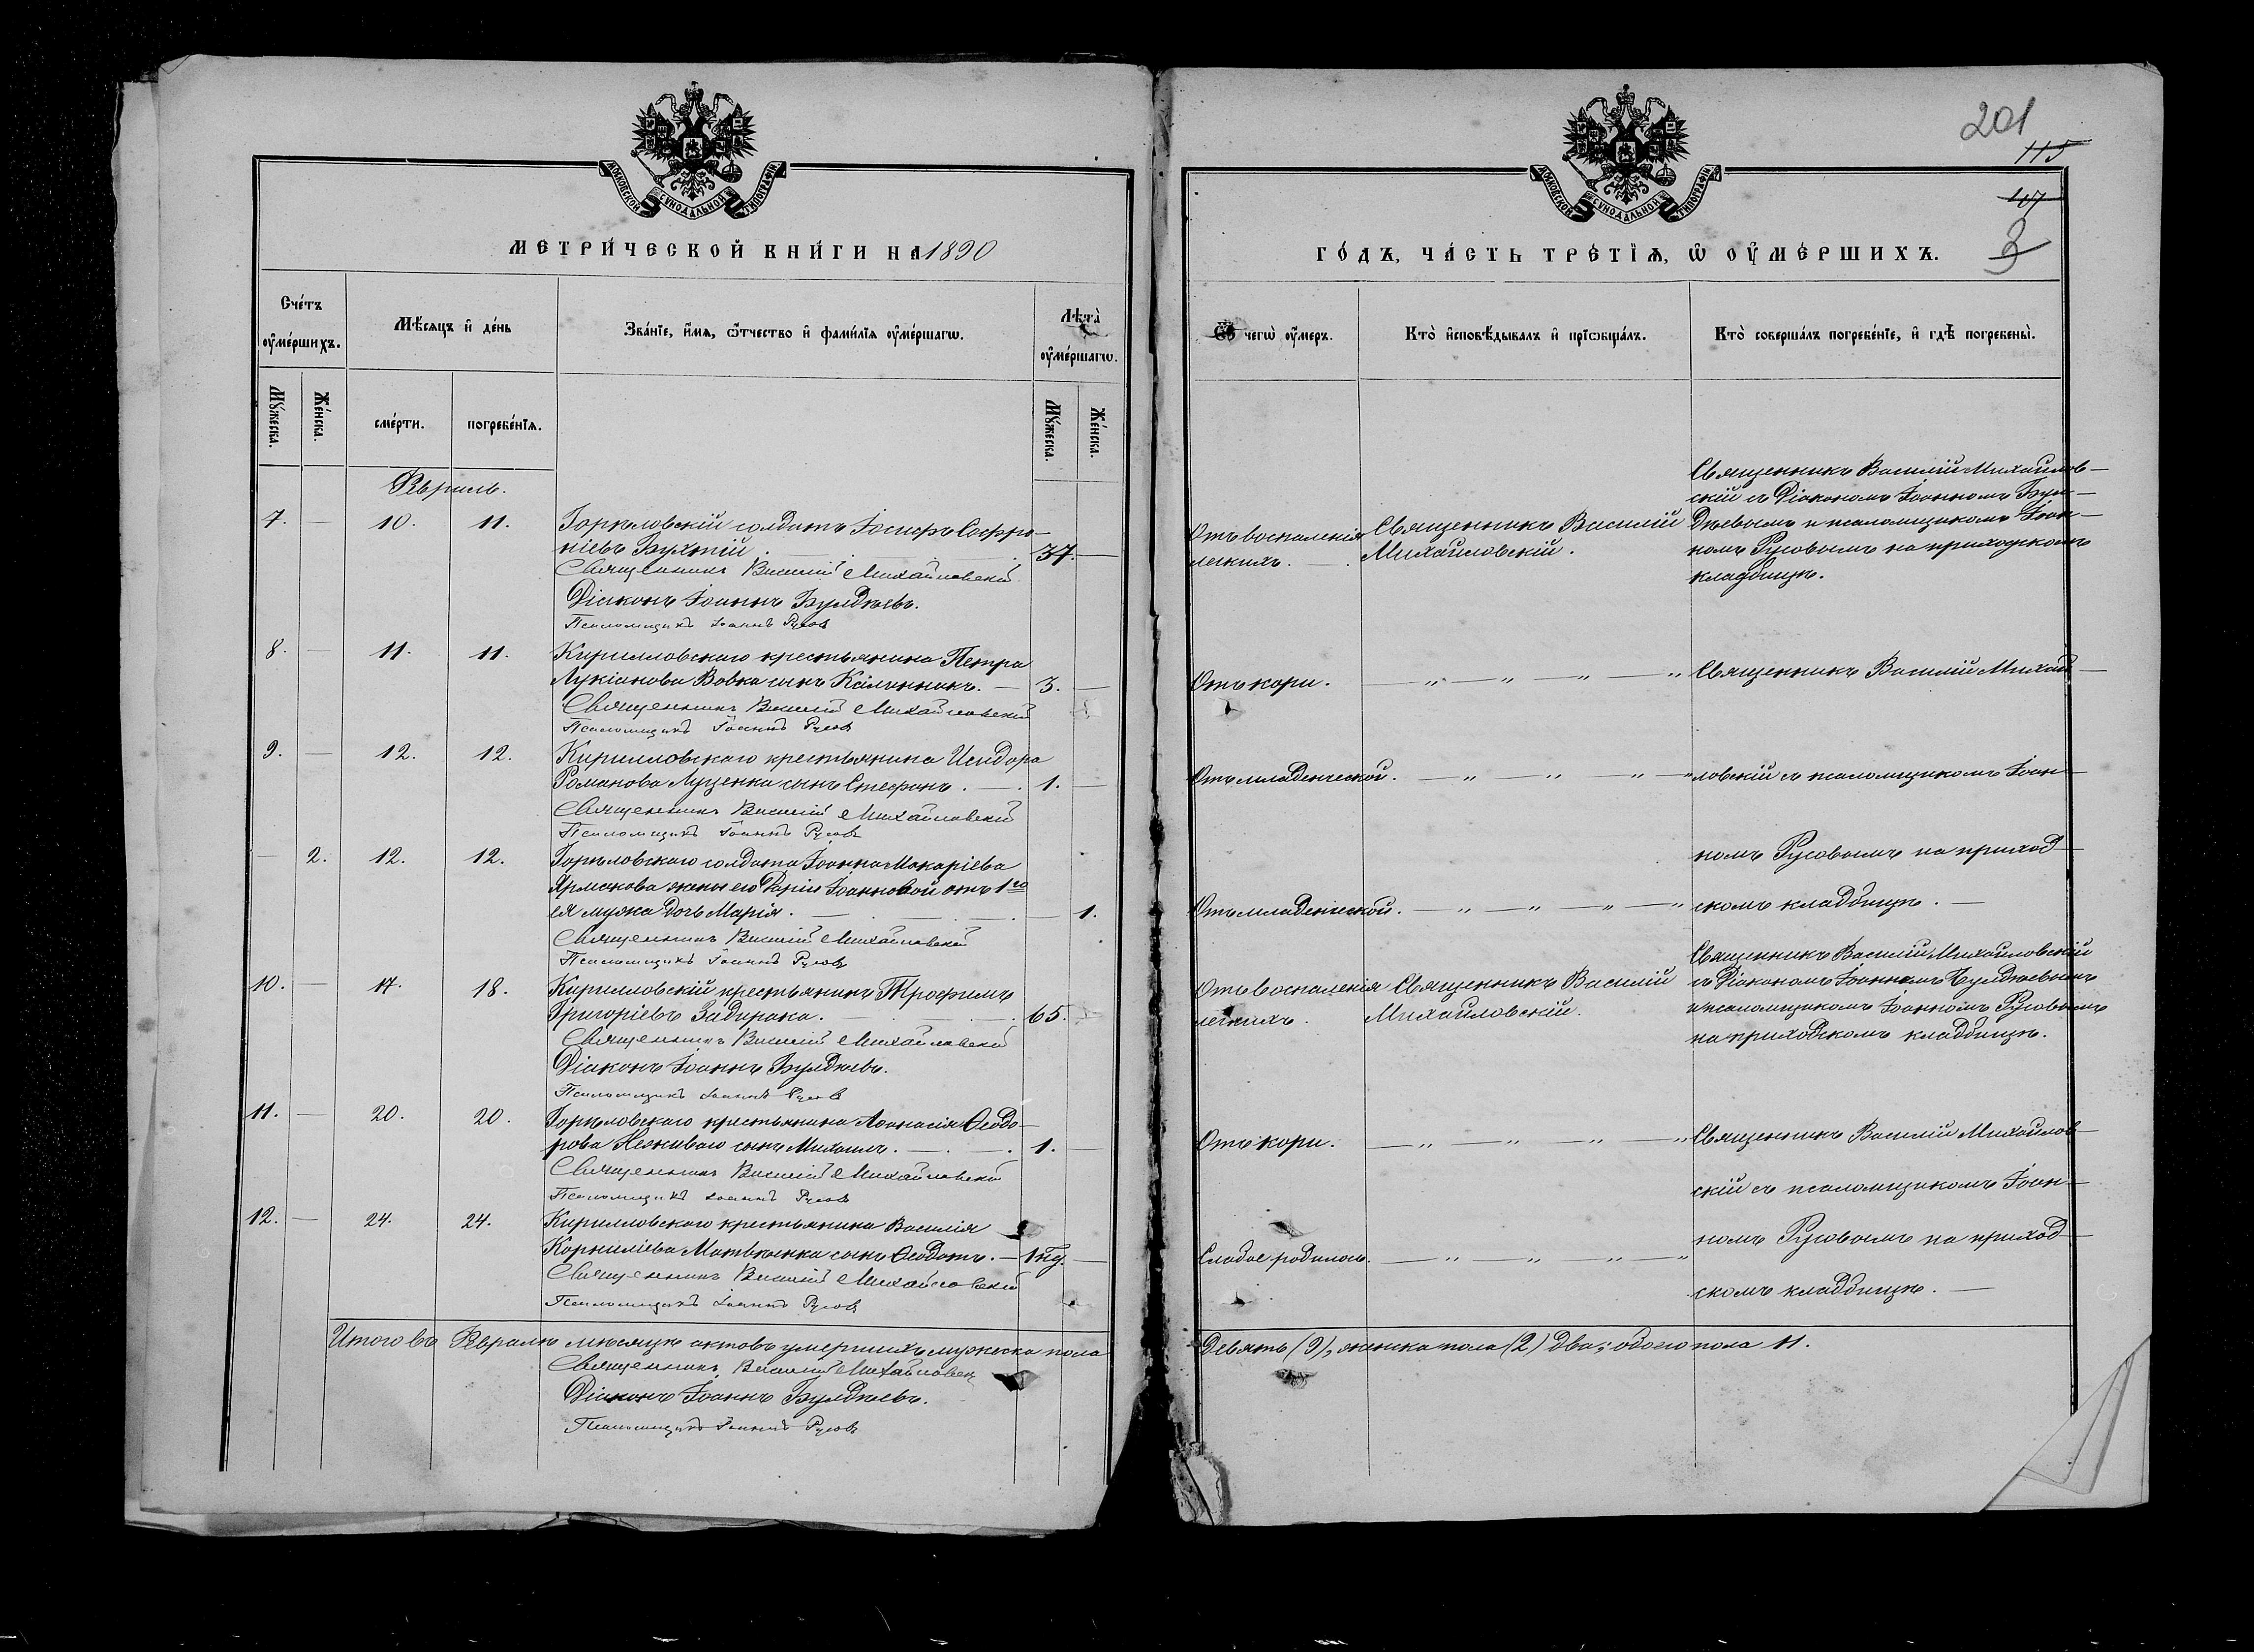 МОСКОВСКОЙ СѴНОДАЛЬНОЙ ТИПОГРАФІИ
МЕТРИ́ЧЕСКОЙ КНИ́ГИ НА 1890
Сче́тъ оу҆ме́ршихъ.
Мѣ́сѧцъ и҆ де́нь
Зва́нїе, и҆́мѧ, ѻ҆́тчество и҆ фами́лїѧ оу҆ме́ршагѡ.
Лѣ́та оу҆ме́ршагѡ.
Мꙋ́жеска.
Же́нска.
сме́рти.
погребе́нїѧ.
Мꙋ́жеска.
Же́нска.
Февраль.
7. — 10. 11. Горѣловскій солдатъ Іосифъ Софро-
ніевъ Бухтій. 37. —
Священникъ Василій Михайловскій
Діаконъ Іоаннъ Булдѣевъ.
Псаломщикъ Іоаннъ Русовъ
8. — 11. 11. Кирилловскаго крестьянина Петра
Лукіанова Вовка сынъ Каллиникъ. — 3. —
Священникъ Василій Михайловскій
Псаломщикъ Іоаннъ Русовъ
9. — 12. 12. Кирилловскаго крестьянина Исидора
Романова Луценка сынъ Стефанъ. — 1. —
Священникъ Василій Михайловскій
Псаломщикъ Іоаннъ Русовъ
— 2. 12. 12. Горѣловскаго солдата Іоанна Макаріева
Ярмакова жены его Даріи Іоанновой отъ 1го
ея мужа дочь Марія. — — 1.
Священникъ Василій Михайловскій
Псаломщикъ Іоаннъ Русовъ
10. — 17. 18. Кирилловскій крестьянинъ Трофимъ
Григоріевъ Задирака. — 65. —
Священникъ Василій Михайловскій
Діаконъ Іоаннъ Булдѣевъ.
Псаломщикъ Іоаннъ Русовъ
11. — 20. 20. Горѣловскаго крестьянина Аѳанасія Ѳеодо-
рова Неживаго сынъ Михаилъ. — 1. —
Священникъ Василій Михайловскій
Псаломщикъ Іоаннъ Русовъ
12. — 24. 24. Кирилловскаго крестьянина Василія
Корниліева Матвѣенка сынъ Ѳеодотъ. —
Священникъ Василій Михайловскій
Псаломщикъ Іоаннъ Русовъ
Итого въ Февралѣ мѣсяцѣ актовъ умершихъ мужеска пола
Священникъ Василій Михайловскій
Діаконъ Іоаннъ Булдѣевъ.
Псаломщикъ Іоаннъ Русовъ
201
115
3
МОСКОВСКОЙ СѴНОДАЛЬНОЙ ТИПОГРАФІИ
ГО́ДЪ, ЧА́СТЬ ТРЕ́ТЇѦ, Ѡ҆ ОУ҆МЕ́РШИХЪ.
Ѿ чегѡ̀ оу҆́меръ.
Кто̀ и҆сповѣ́дывалъ и҆ прїѻбща́лъ.
Кто̀ соверша́лъ погребе́нїе, и҆ гдѣ̀ погребены̀.
Отъ воспаленія
легкихъ.
Священникъ Василій
Михайловскій.
Священникъ Василій Михайлов-
скій съ Діакономъ Іоанномъ Бул-
дѣевымъ и псаломщикомъ Іоан-
номъ Русовымъ на приходскомъ
кладбищѣ.
Отъ кори. — „ — „ — „ — „ Священникъ Василій Михай-
Отъ младенческой. — „ — „ — „ — „ ловскій съ псаломщикомъ Іоан-
номъ Русовымъ на приход-
Отъ младенческой. — „ — „ — „ — „ скомъ кладбищѣ. —
Отъ воспаленія
легкихъ.
Священникъ Василій
Михайловскій.
Священникъ Василій Михайловскій
съ Діакономъ Іоанномъ Булдѣевымъ
и псаломщикомъ Іоанномъ Русовымъ
на приходскомъ кладбищѣ.
Отъ кори. — „ — „ — „ — „ Священникъ Василій Михайлов-
скій съ псаломщикомъ Іоан-
номъ Русовымъ на приход-
Слабое родилось. — „ — „ — „ — „
скомъ кладбищѣ. —
Девять (9), женска пола (2) два; обоего пола 11.